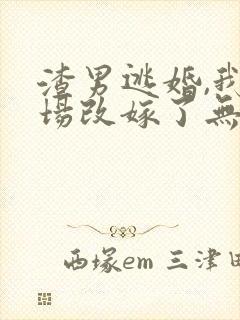 渣男逃婚,我
场改嫁了無
西塚em 三津田